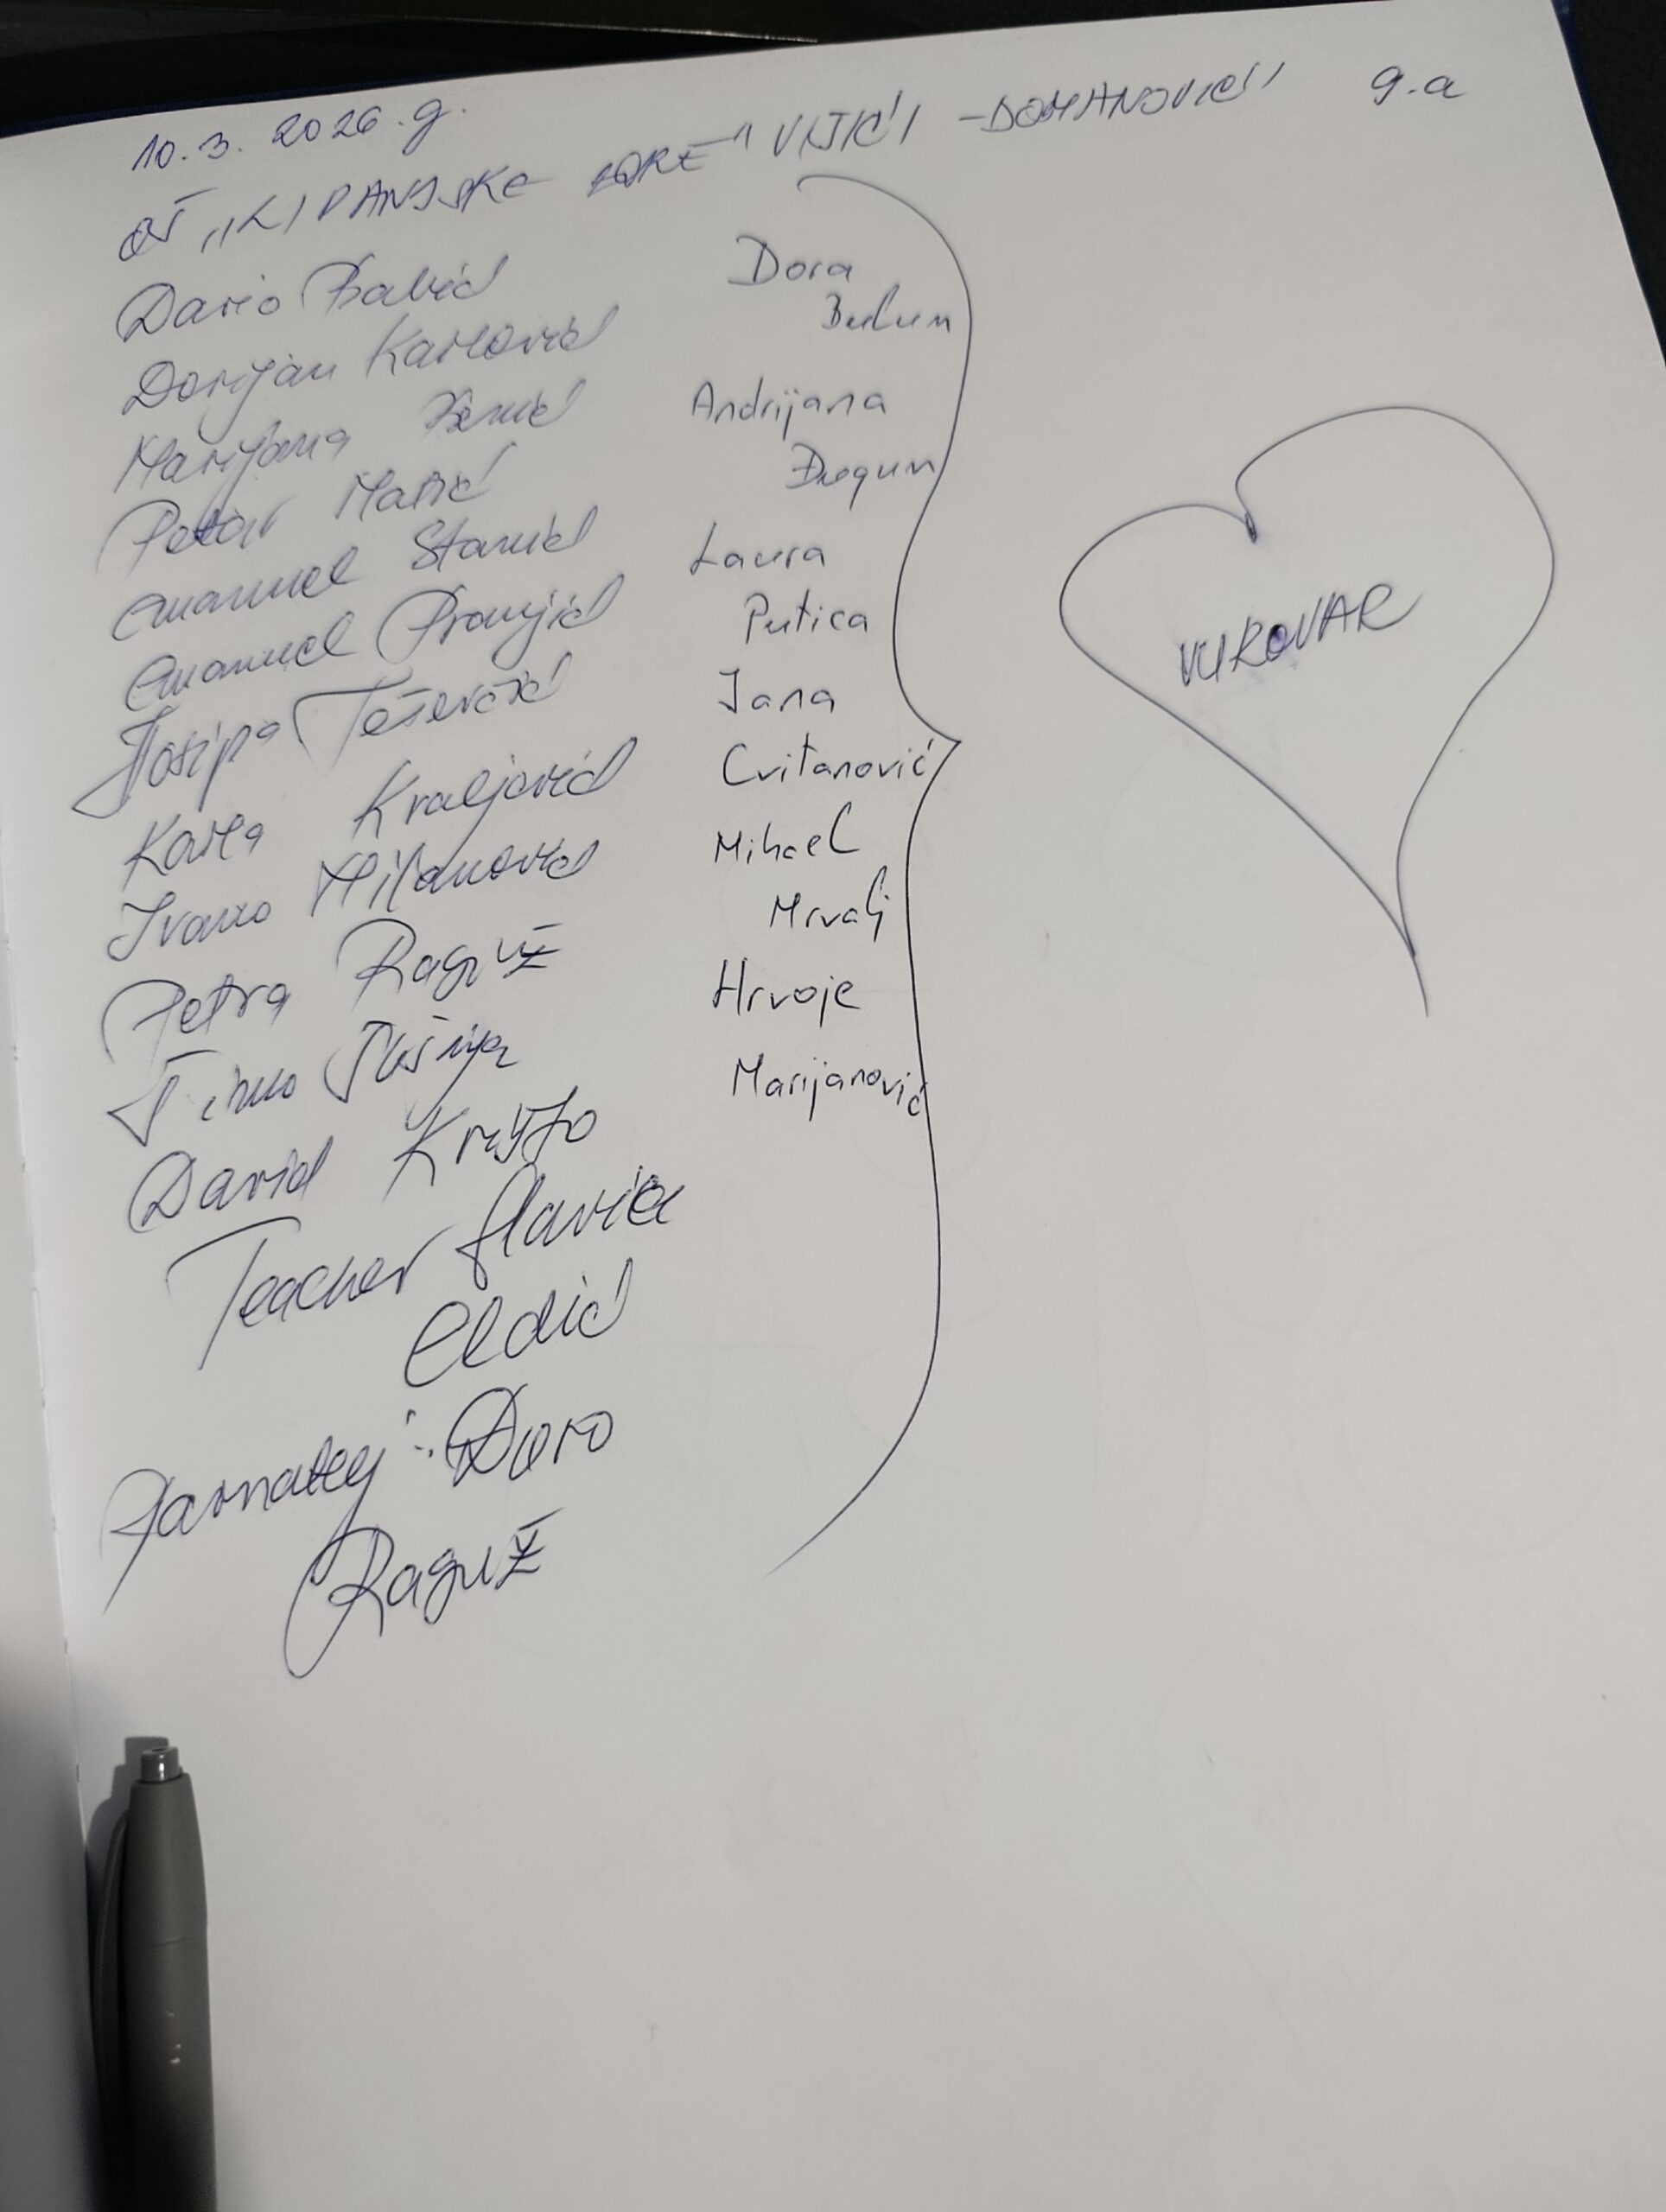 10. 3. 2026. g.
OŠ „LIPANJSKE ZORE" VIŠIĆI - DOMANOVIĆI 9.a
Dario Babić
Dorijan Karlović
Marijana
Petar Matić
Emanuel Stanić
Emanuel Pranjić
Josipa
Karla Kraljević
Ivano Milanović
Petra Raguž
Šimo
David Krišto
Teacher Slavica
Eldić
Doro
Raguž
Dora
Andrijana
Dragun
Laura
Putica
Jana
Cvitanović
Mihael
Mrvalj
Hrvoje
Marijanović
VUKOVAR